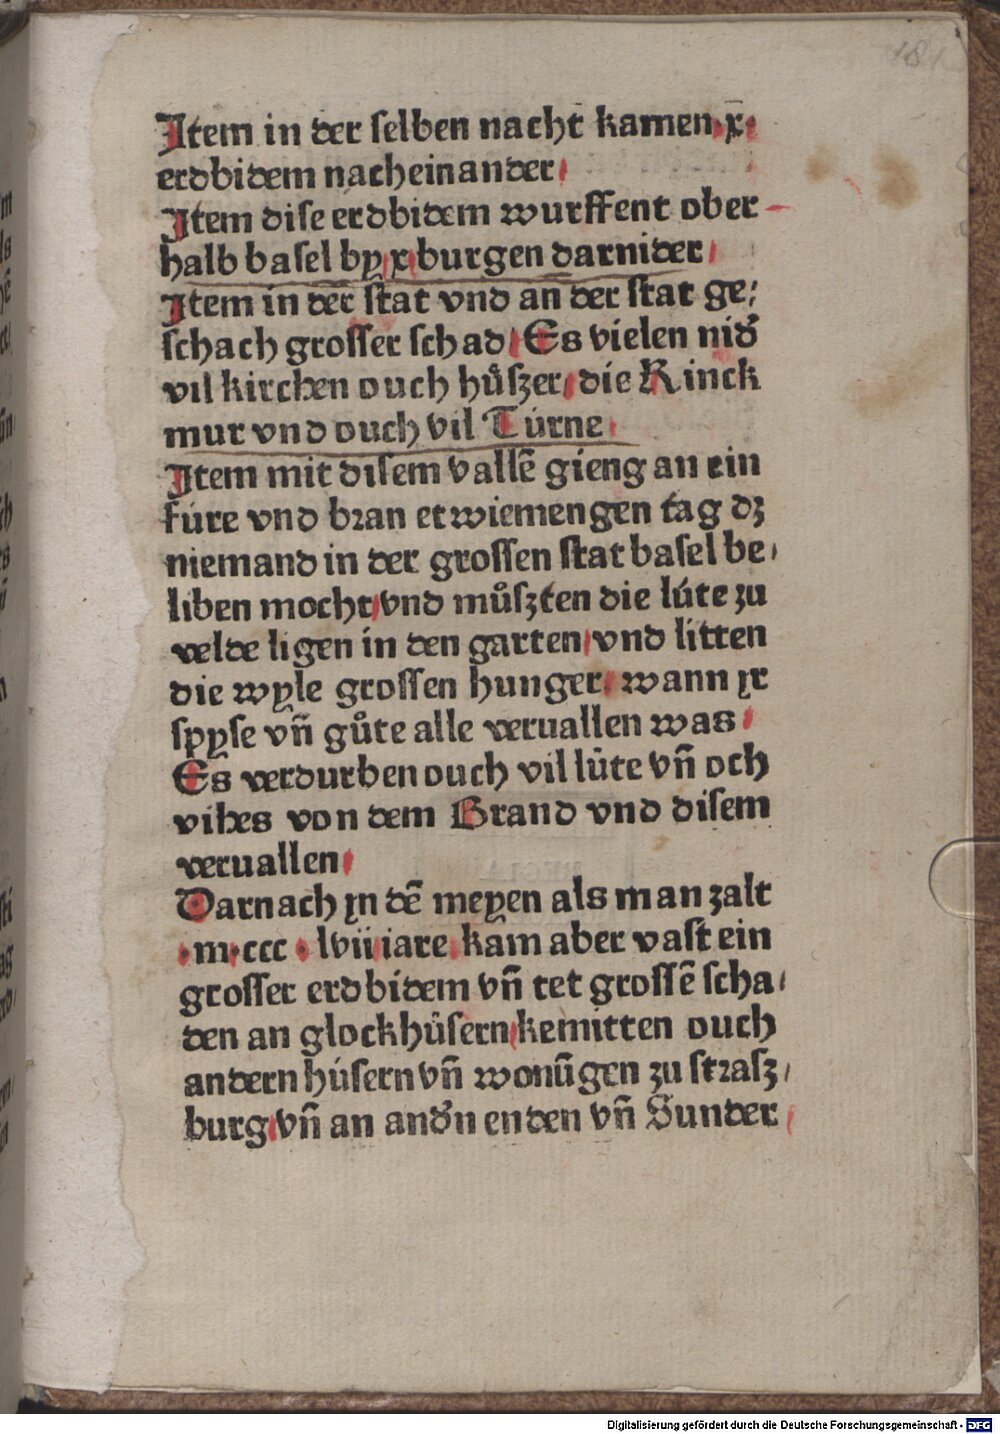 181
Item in der selben nacht kamen .x̄.
erdbidem nacheinander/
Item dise erdbidem wurffent ober
halb basel by/x/burgen darnider/
Item in der stat vnd an der stat ge⸗
schach grosser schad/Es vielen nid᷑
vil kirchen ouch hůszer/die Rinck
mur vnd ouch vil Túrne/
Item mit disem vallē gieng an ein
fúre vnd bran etwiemengen tag dz
niemand in der grossen stat basel be/
liben mocht/vnd můszten die lúte zu
velde ligen in den garten/vnd litten
die wyle grossen hunger/wann ir
spyse vn̄ gůte alle veruallen was/
Es verdurben ouch vil lúte vn̄ och
vihes von dem Brand vnd disem
veruallen/
Darnach yn dē meyen als man zalt
.m.ccc . lvii iare kam aber vast ein
grosser erdbidem vn̄ tet grossē scha/
den an glockhúsern/kemitten ouch
andern húsern vn̄ wonūgen zu strasz/
burg/vn̄ an and᷑n enden vn̄ Sunder/
Digitalisierung gefördert durch die Deutsche Forschungsgemeinschaft - DFG